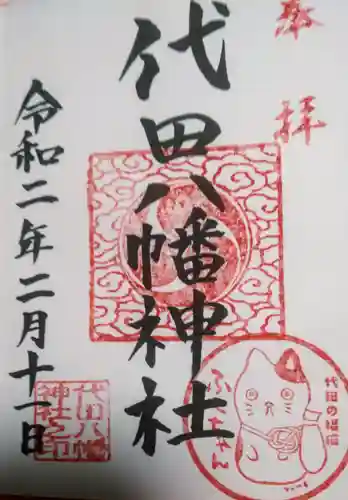 奉拝
代田八幡神社
令和二年二月十一日
代田八幡
神社之印
代田の招福
ふくちゃん